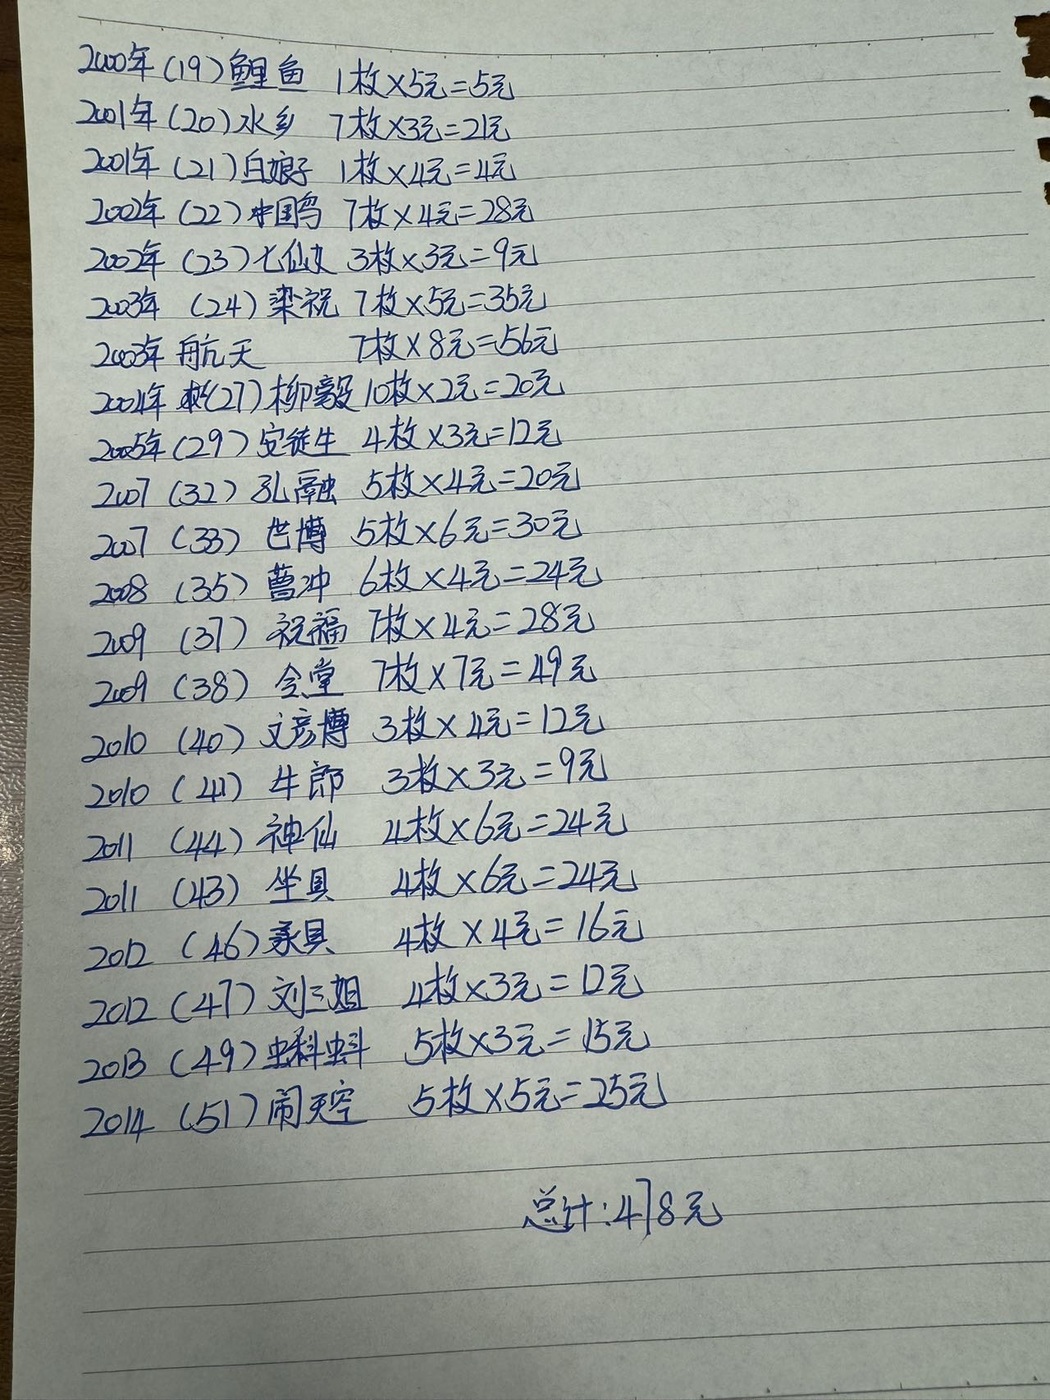 2000年(19)鲤鱼 1枚×5元=5元
2001年(20)水乡 7枚×3元=21元
2001年(21)白娘子 1枚×4元=4元
2002年(22)中国鸟 7枚×4元=28元
2002年(23)七仙女 3枚×3元=9元
2003年(24)梁祝 7枚×5元=35元
2003年航天 7枚×8元=56元
2004年(27)柳毅10枚×2元=20元
2005年(29)安徒生 4枚×3元=12元
2007(32)孔融 5枚×4元=20元
2007(33)世博 5枚×6元=30元
2008(35)曹冲 6枚×4元=24元
2009(37)祝福 7枚×4元=28元
2009(38)会堂 7枚×7元=49元
2010(40)文彦博 3枚×4元=12元
2010(41)牛郎 3枚×3元=9元
2011(44)神仙 4枚×6元=24元
2011(43)坐具 4枚×6元=24元
2012(46)承具 4枚×4元=16元
2012(47)刘三姐 4枚×3元=12元
2013(49)蝌蚪 5枚×3元=15元
2014(51)闹天空 5枚×5元=25元
总计:478元